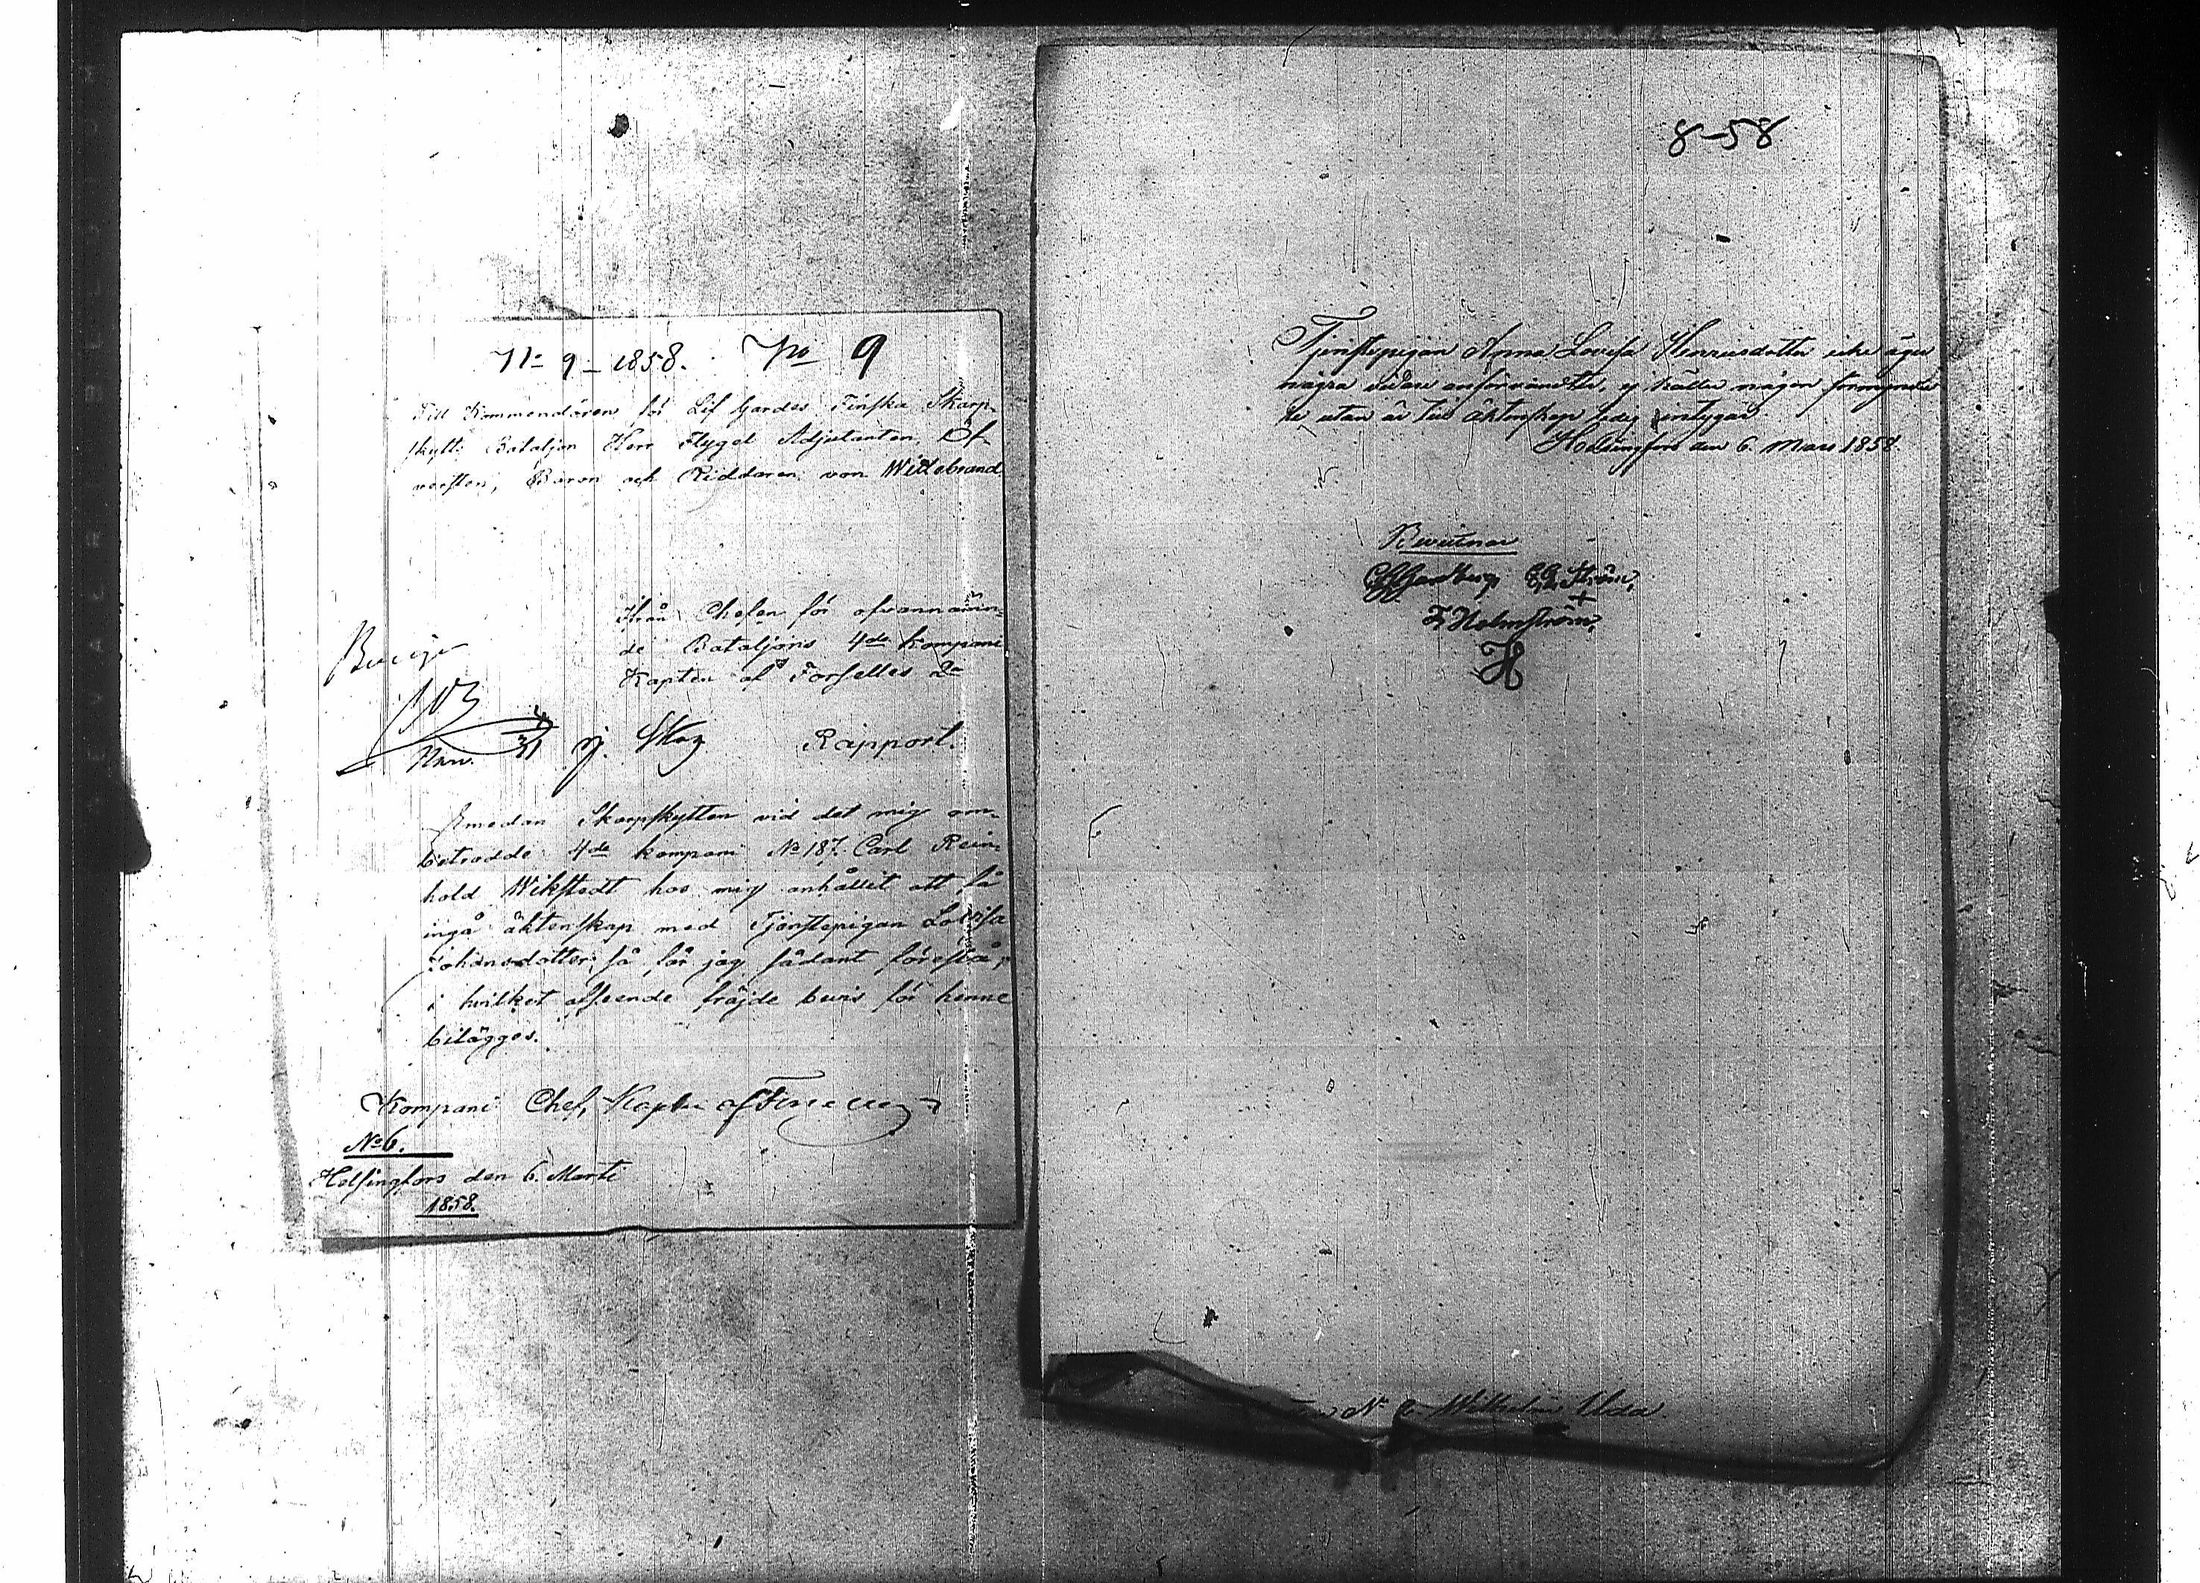 No 9 – 1858. No 9
Till Kommendören för Lif Gardes Finska Skarp-
skytte Bataljon Herr Flygel Adjutanten, Öf-
versten, Baron och Riddaren von Willebrand
Från Chefen för ofvannämn-
de Bataljons 4de Kompani
Kapten af Forselles 2a
Rapport.
Emedan Skarpskytten vid det mig an-
betrodde 4de kompani No 187. Carl Rein-
hold Wikstedt hos mig anhållit att få
ingå äktenskap med Tjenstepigan Lovisa
Johansdotter; så får jag sådant föreslå,
i hvilket afseende fräjde bevis för henne
bilägges.
Kompani Chef, Kapten af Forselles 2
No 6.
Helsingfors den 6. Marti
1858.
8–58
Tjenstepigan Anna Lovisa Henricsdotter icke äger
några vidare anförvandter, ej häller någon förmynda-
re utan är till äktenskap ledig intygar.
Helsingfors den 6. Mars 1858.
Bevittnar
Ström,
+
F. Holmström,
H
No Wilhelm